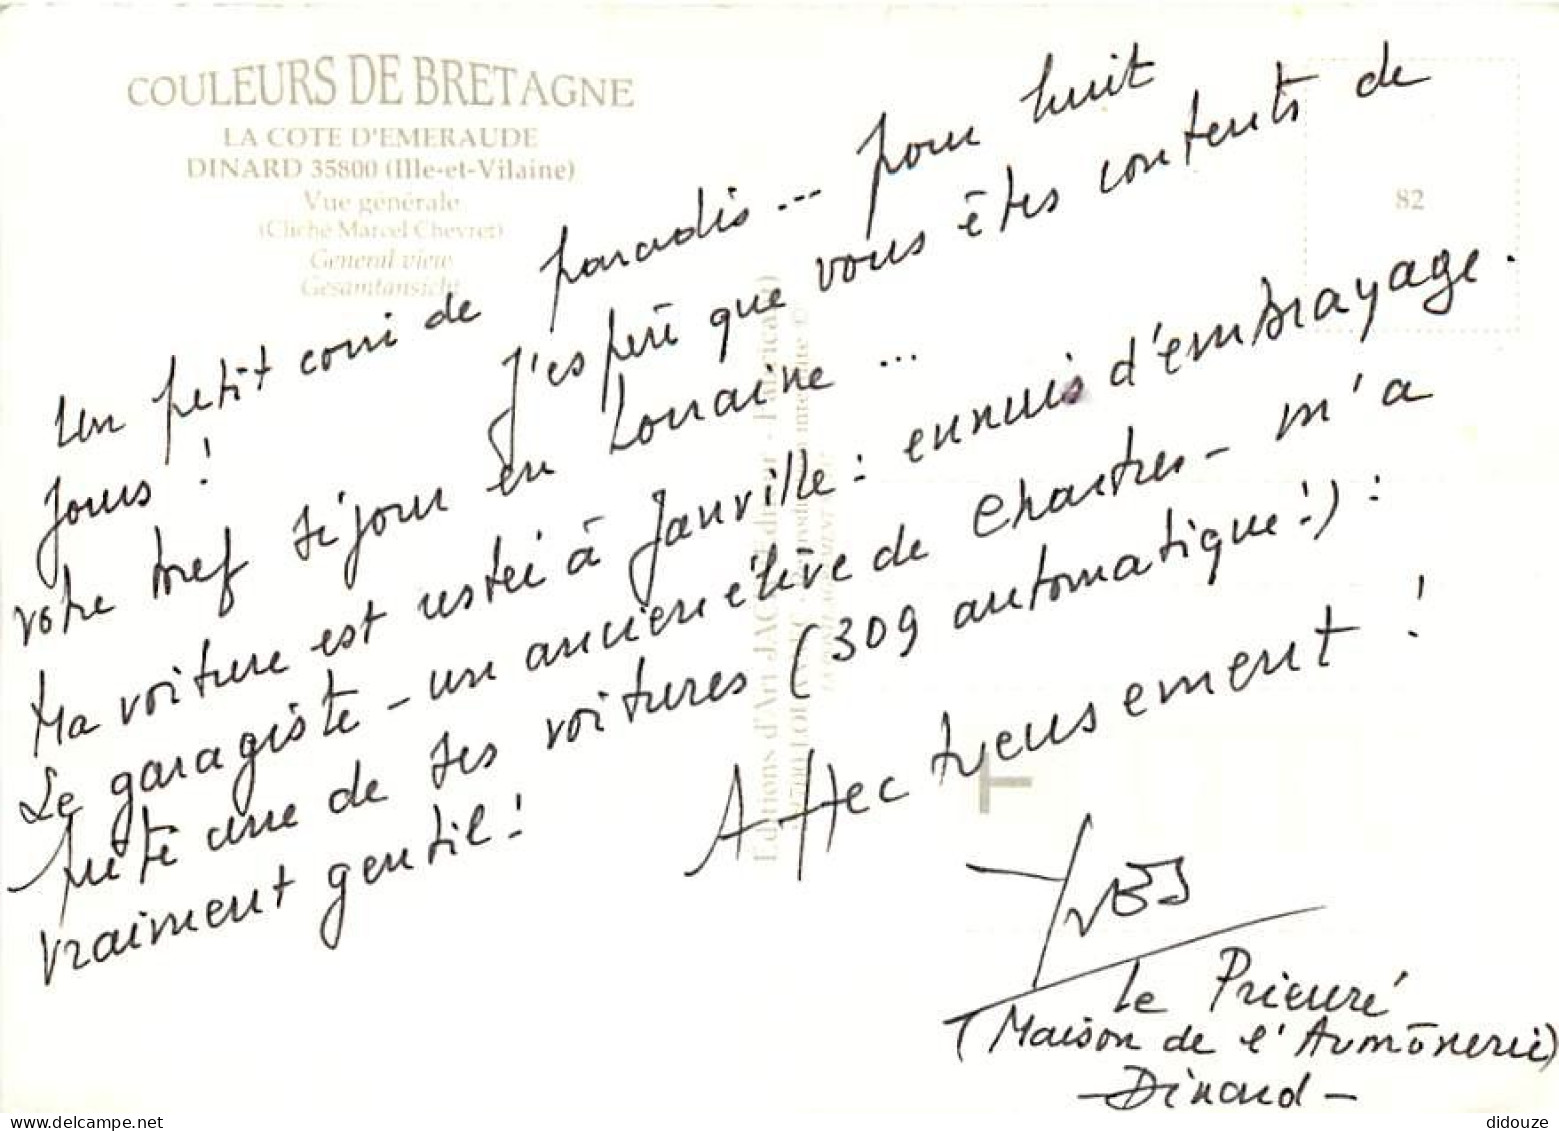 COULEURS DE BRETAGNE
LA COTE D'EMERAUDE
DINARD 35800 (Ille-et-Vilaine)
Vue générale
(Cliché Marcel Chevret)
General view
Gesamtansicht
82
Un petit coin de paradis... pour huit
jours ! J'espère que vous êtes contents de
votre bref séjour en Lorraine ...
Ma voiture est restée à Janville : ennuis d'embrayage.
Le garagiste - un ancien élève de Chartres - m'a
prêté une de ses voitures (309 automatique !) :
vraiment gentil !
Affectueusement !
Yves
Le Prieuré
(Maison de l'Aumônerie)
- Dinard -
Editions d'Art JACK
didouze